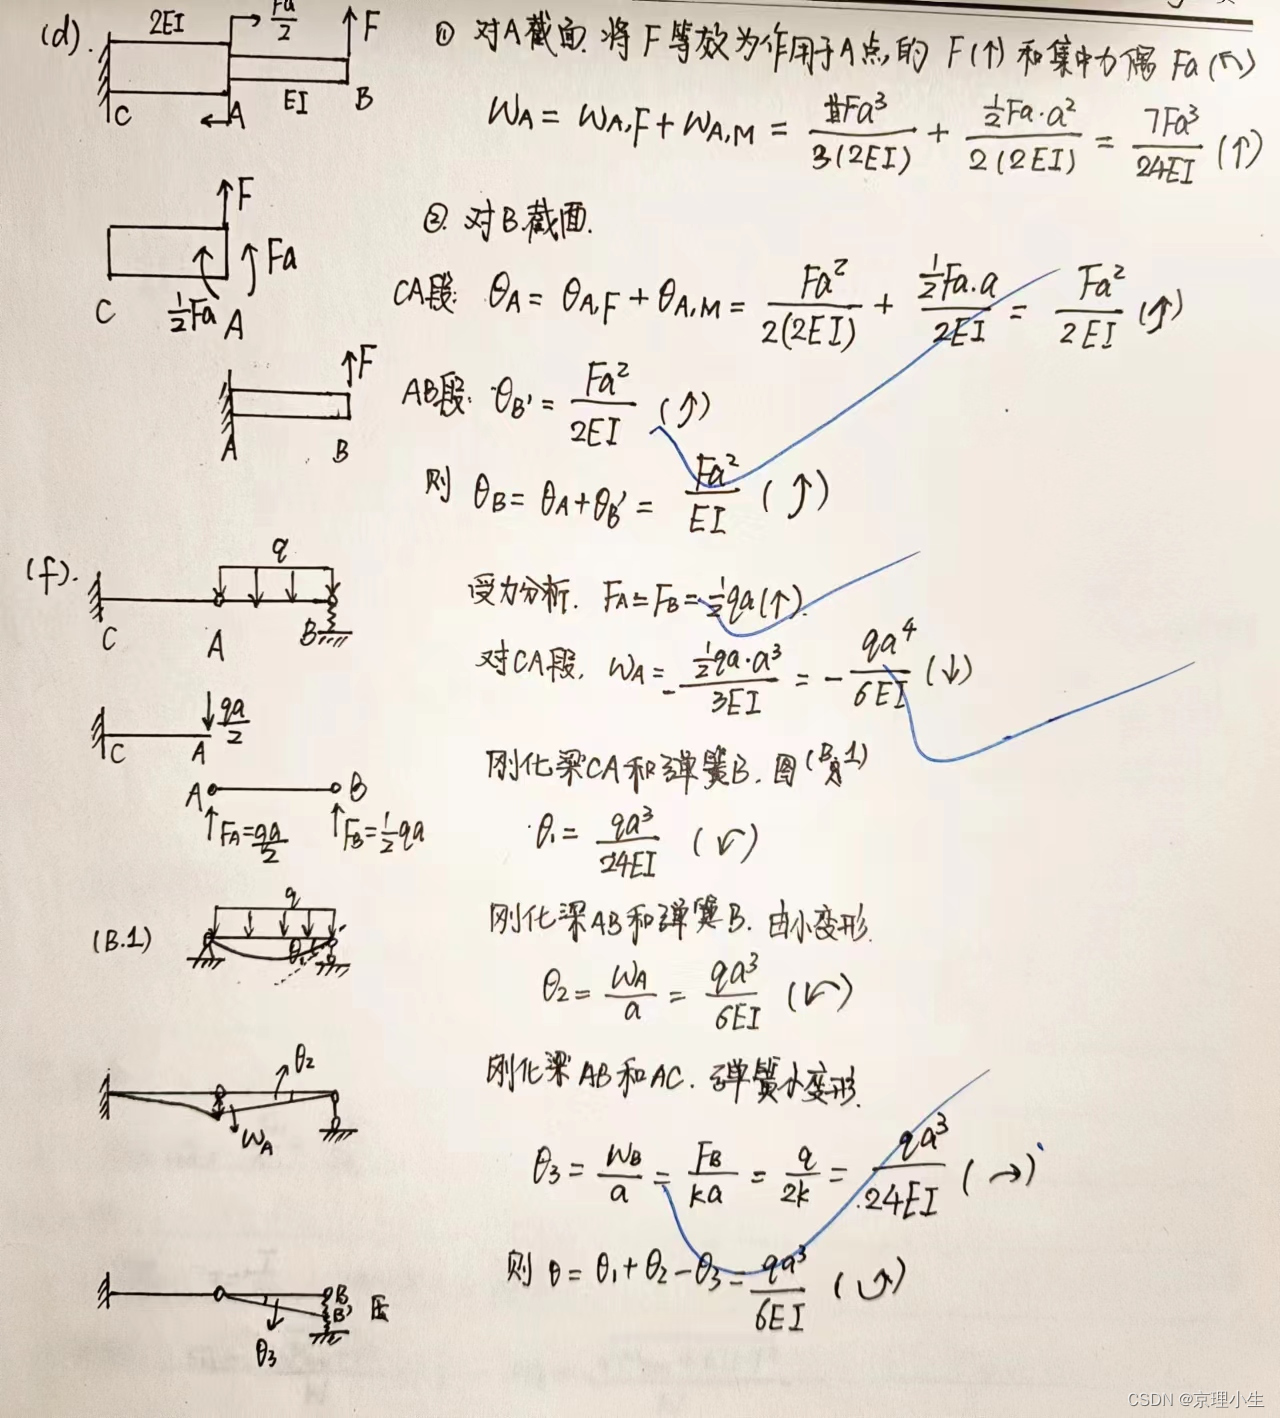 (d).
2EI
Fa/2
F
C
A
EI
B
① 对A截面. 将F等效为作用于A点的 F(↑) 和集中力偶 Fa(↶)
WA = WA,F + WA,M = Fa³/3(2EI) + ½Fa·a²/2(2EI) = 7Fa³/24EI (↑)
F
Fa
½Fa
C
A
② 对B截面.
CA段: θA = θA,F + θA,M = Fa²/2(2EI) + ½Fa.a/2EI = Fa²/2EI (↑)
F
A
B
AB段: θB' = Fa²/2EI (↑)
则 θB = θA + θB' = Fa²/EI (↑)
(f).
q
C
A
B
受力分析. FA = FB = ½qa(↑).
对CA段, WA = -½qa·a³/3EI = -qa⁴/6EI (↓)
qa/2
C
A
刚化梁CA和弹簧B. 图(B.1)
A
B
FA=qa/2
FB=½qa
θ₁ = qa³/24EI (↶)
(B.1)
q
θ₁
刚化梁AB和弹簧B. 由小变形.
θ₂ = WA/a = qa³/6EI (↶)
θ₂
WA
刚化梁AB和AC. 弹簧小变形.
θ₃ = WB/a = FB/ka = q/2k = qa³/24EI (→)
B
B'
压
θ₃
则 θ = θ₁ + θ₂ - θ₃ = qa³/6EI (↺)
CSDN @京理小生